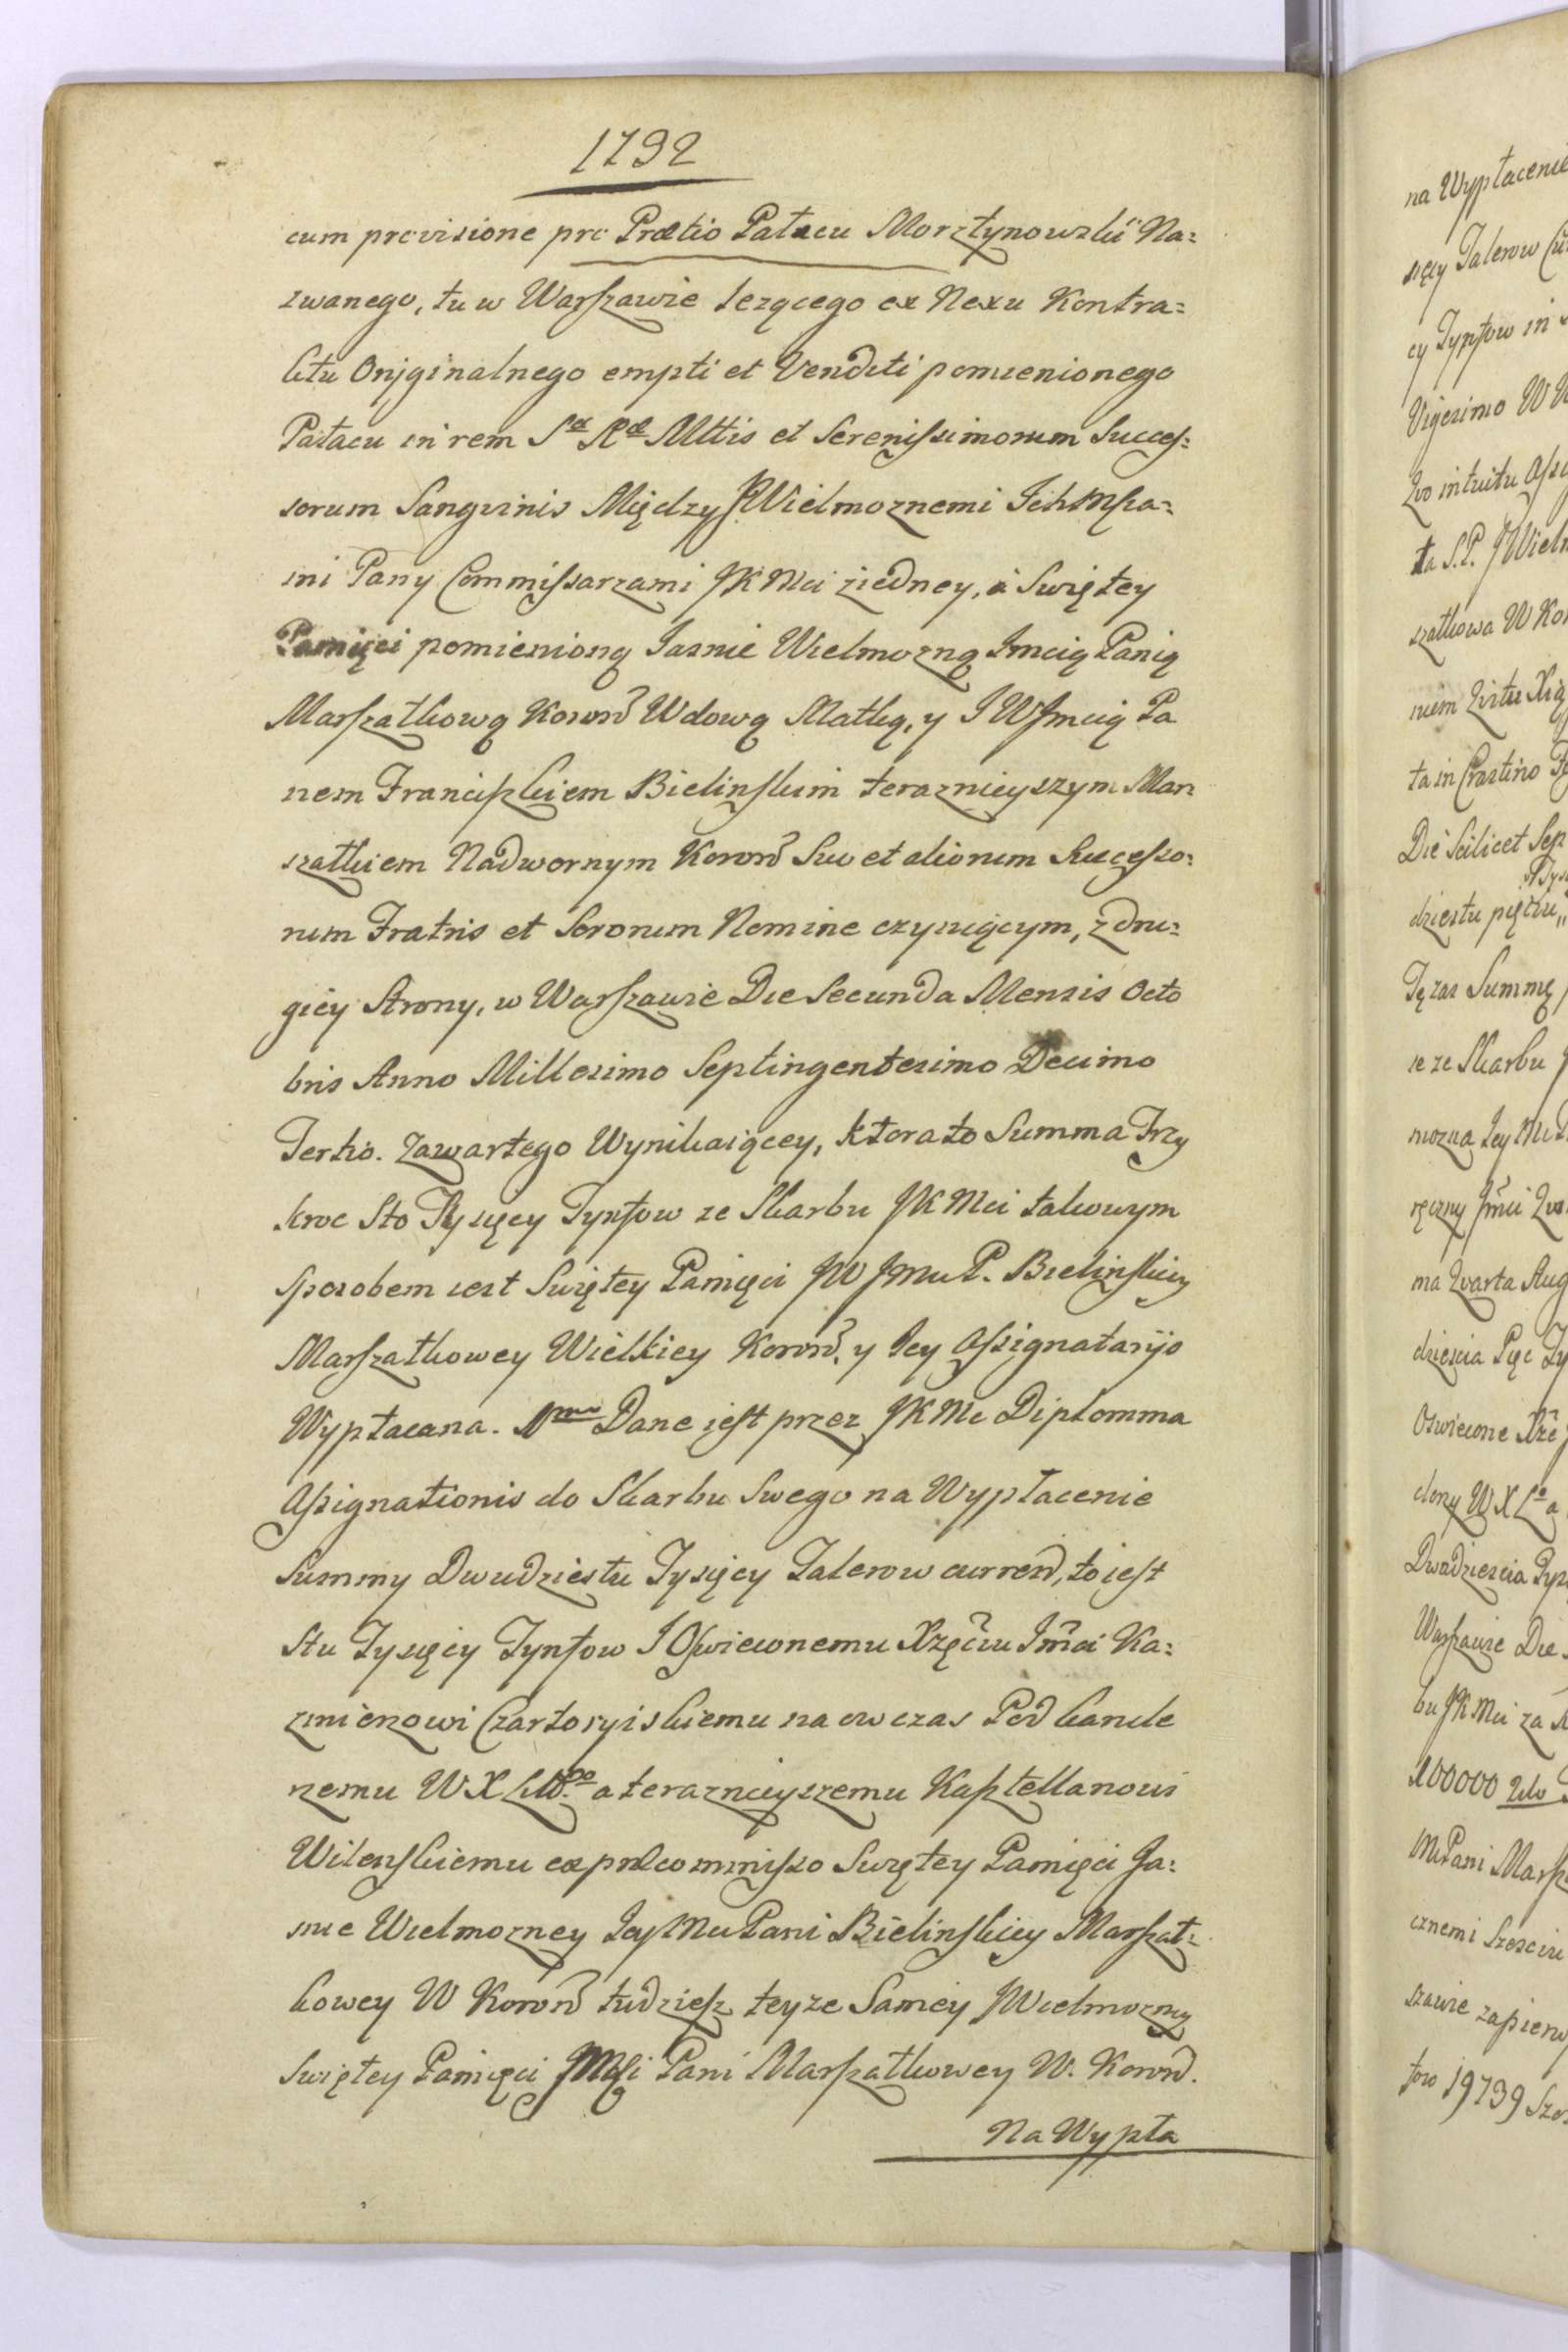 1732
cum provisione pro Prætio Pałacu Morsztynowski Na=
zwanego, tu w Warszawie lezącego ex Nexu Kontra=
ktu Oryginalnego empti et Venditi pomienionego
Pałacu in rem Sæ Ræ Mttis et Serenissimorum Succes=
sorum Sangvinis Między JWielmoznemi Ichmscia=
mi Pany Commissarzami JKMci ziedney, a Swiętey
Pamięci pomienioną Jasnie Wielmozną Jmcią Panią
Marszałkową Koronn Wdową Matką, y JWJmcią Pa
nem Franciszkiem Bielinskim teraznieyszym Mar
szałkiem Nadwornym Koronn Suo et aliorum Successo=
rum Fratris et Sororum Nomine czyniącym, z dru=
giey Strony, w Warszawie Die Secunda Mensis Octo
bris Anno Millesimo Septingentesimo Decimo
Tertio. Zawartego Wynikaiącey, ktora to Summa Trzy
kroc Sto Tysięcy Tynfow ze Skarbu JKMci takowym
sposobem iest Swiętey Pamięci JWJMci P. Bielinskiey
Marszałkowey Wielkiey Koronn, y Iey Assignataryo
Wypłacana. 1mo Dane iest przez JKMc Diplomma
Assignationis do Skarbu Swego na Wypłacenie
Summy Dwudziestu Tysięcy Talerow currend, to iest
Stu Tysięcy Tynfow JOswieconemu Xzęciu Jmci Ka=
zmierzowi Czartoryiskiemu na owczas Pod kancle
rzemu WXLitto a teraznieyszemu Kasztellanowi
Wilenskiemu ex præcommisso Swiętey Pamięci Ja=
snie Wielmozney IeyMci Pani Bielinskiey Marszał=
kowey W Koronn tudziesz teyze Samey JWielmozney
Swiętey Pamięci JMci Pani Marszałkowey W. Koronn.
Na Wypła
na Wypłacenie
sięcy Talerow
cy Tynfow in
Vigesimo
intuitu
ta S.P. JWielm
szałkowa W Kor
ta in Crastino
Die Scilicet Sep
dziestu pięciu
Tęzas Summę
se ze Skarbu
mozna Iey Mci
ręczny Jmci
ma Qvarta Aug
dziescia Pięc
Oswiecone Xze
Dwadziescia Tys
Warszawie Die
bu JKMci za
100000
MciPani Marsz
cznemi Szesciu
szawie zapierw
19739